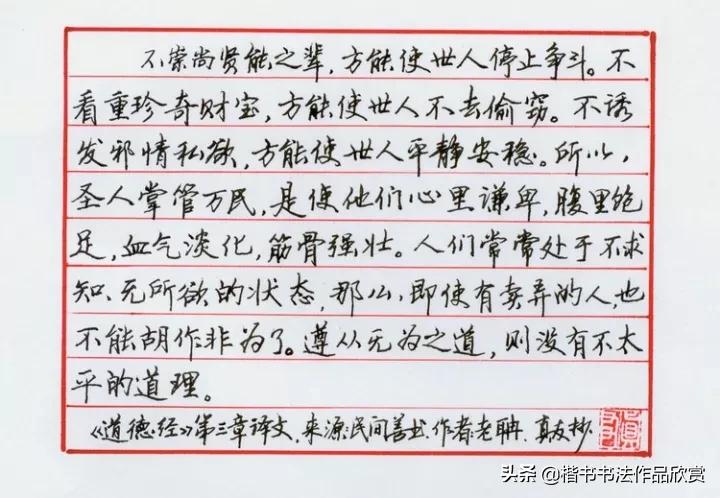 不崇尚贤能之辈，方能使世人停止争斗。不
看重珍奇财宝，方能使世人不去偷窃。不诱
发邪情私欲，方能使世人平静安稳。所以，
圣人掌管万民，是使他们心里谦卑，腹里饱
足，血气淡化，筋骨强壮。人们常常处于不求
知、无所欲的状态，那么，即使有卖弄的人，也
不能胡作非为了。遵从无为之道，则没有不太
平的道理。
《道德经》第三章译文，来源民间善书，作者老聃，真友抄。
头条@楷书书法作品欣赏